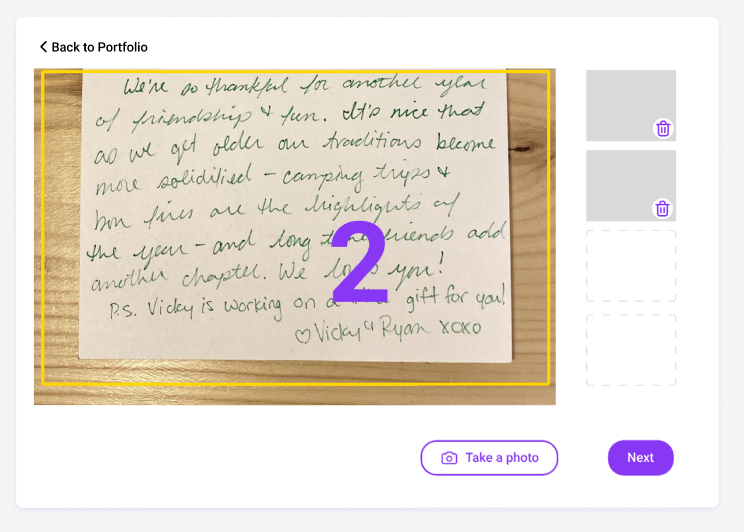 Back to Portfolio
We're so thankful for another year
of friendship & fun. It's nice that
as we get older our traditions become
more solidified – camping trips &
bon fires are the highlights of
the year – and long time friends add
another chapter. We love you!
2
P.S. Vicky is working on a gift for you!
♡ Vicky & Ryan xoxo
Take a photo
Next